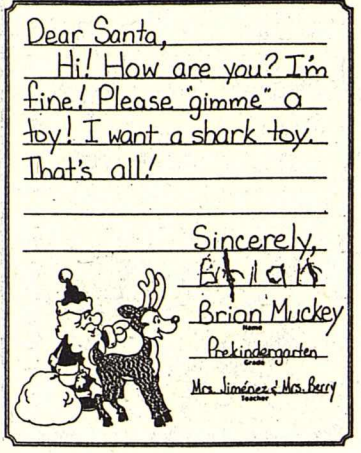 Dear Santa,
Hi! How are you? I'm
fine! Please "gimme" a
toy! I want a shark toy.
That's all!
Sincerely,
Brian
Brian Muckey
Name
Prekindergarten
Grade
Mrs. Jiménez & Mrs. Berry
Teacher